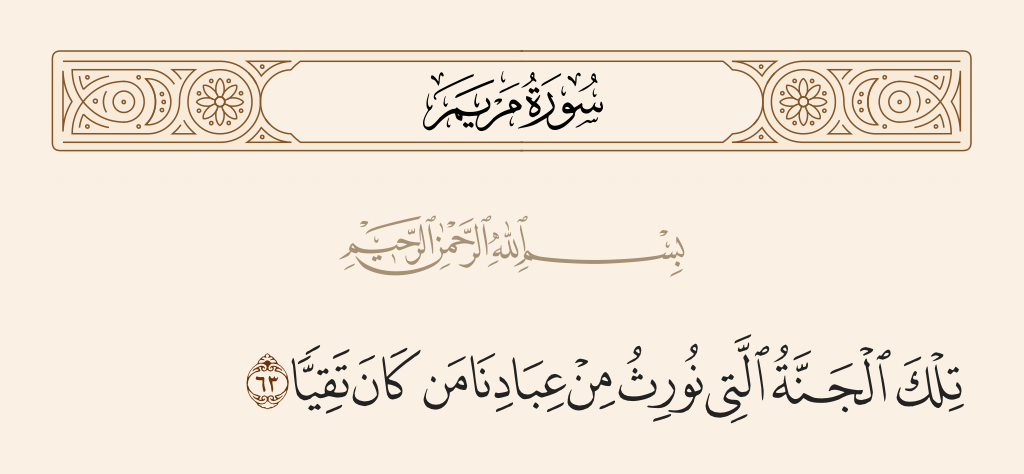 سُورَةُ مَرْيَمَ
بِسْمِ ٱللَّهِ ٱلرَّحْمَٰنِ ٱلرَّحِيمِ
تِلْكَ ٱلْجَنَّةُ ٱلَّتِى نُورِثُ مِنْ عِبَادِنَا مَن كَانَ تَقِيًّا ٦٣